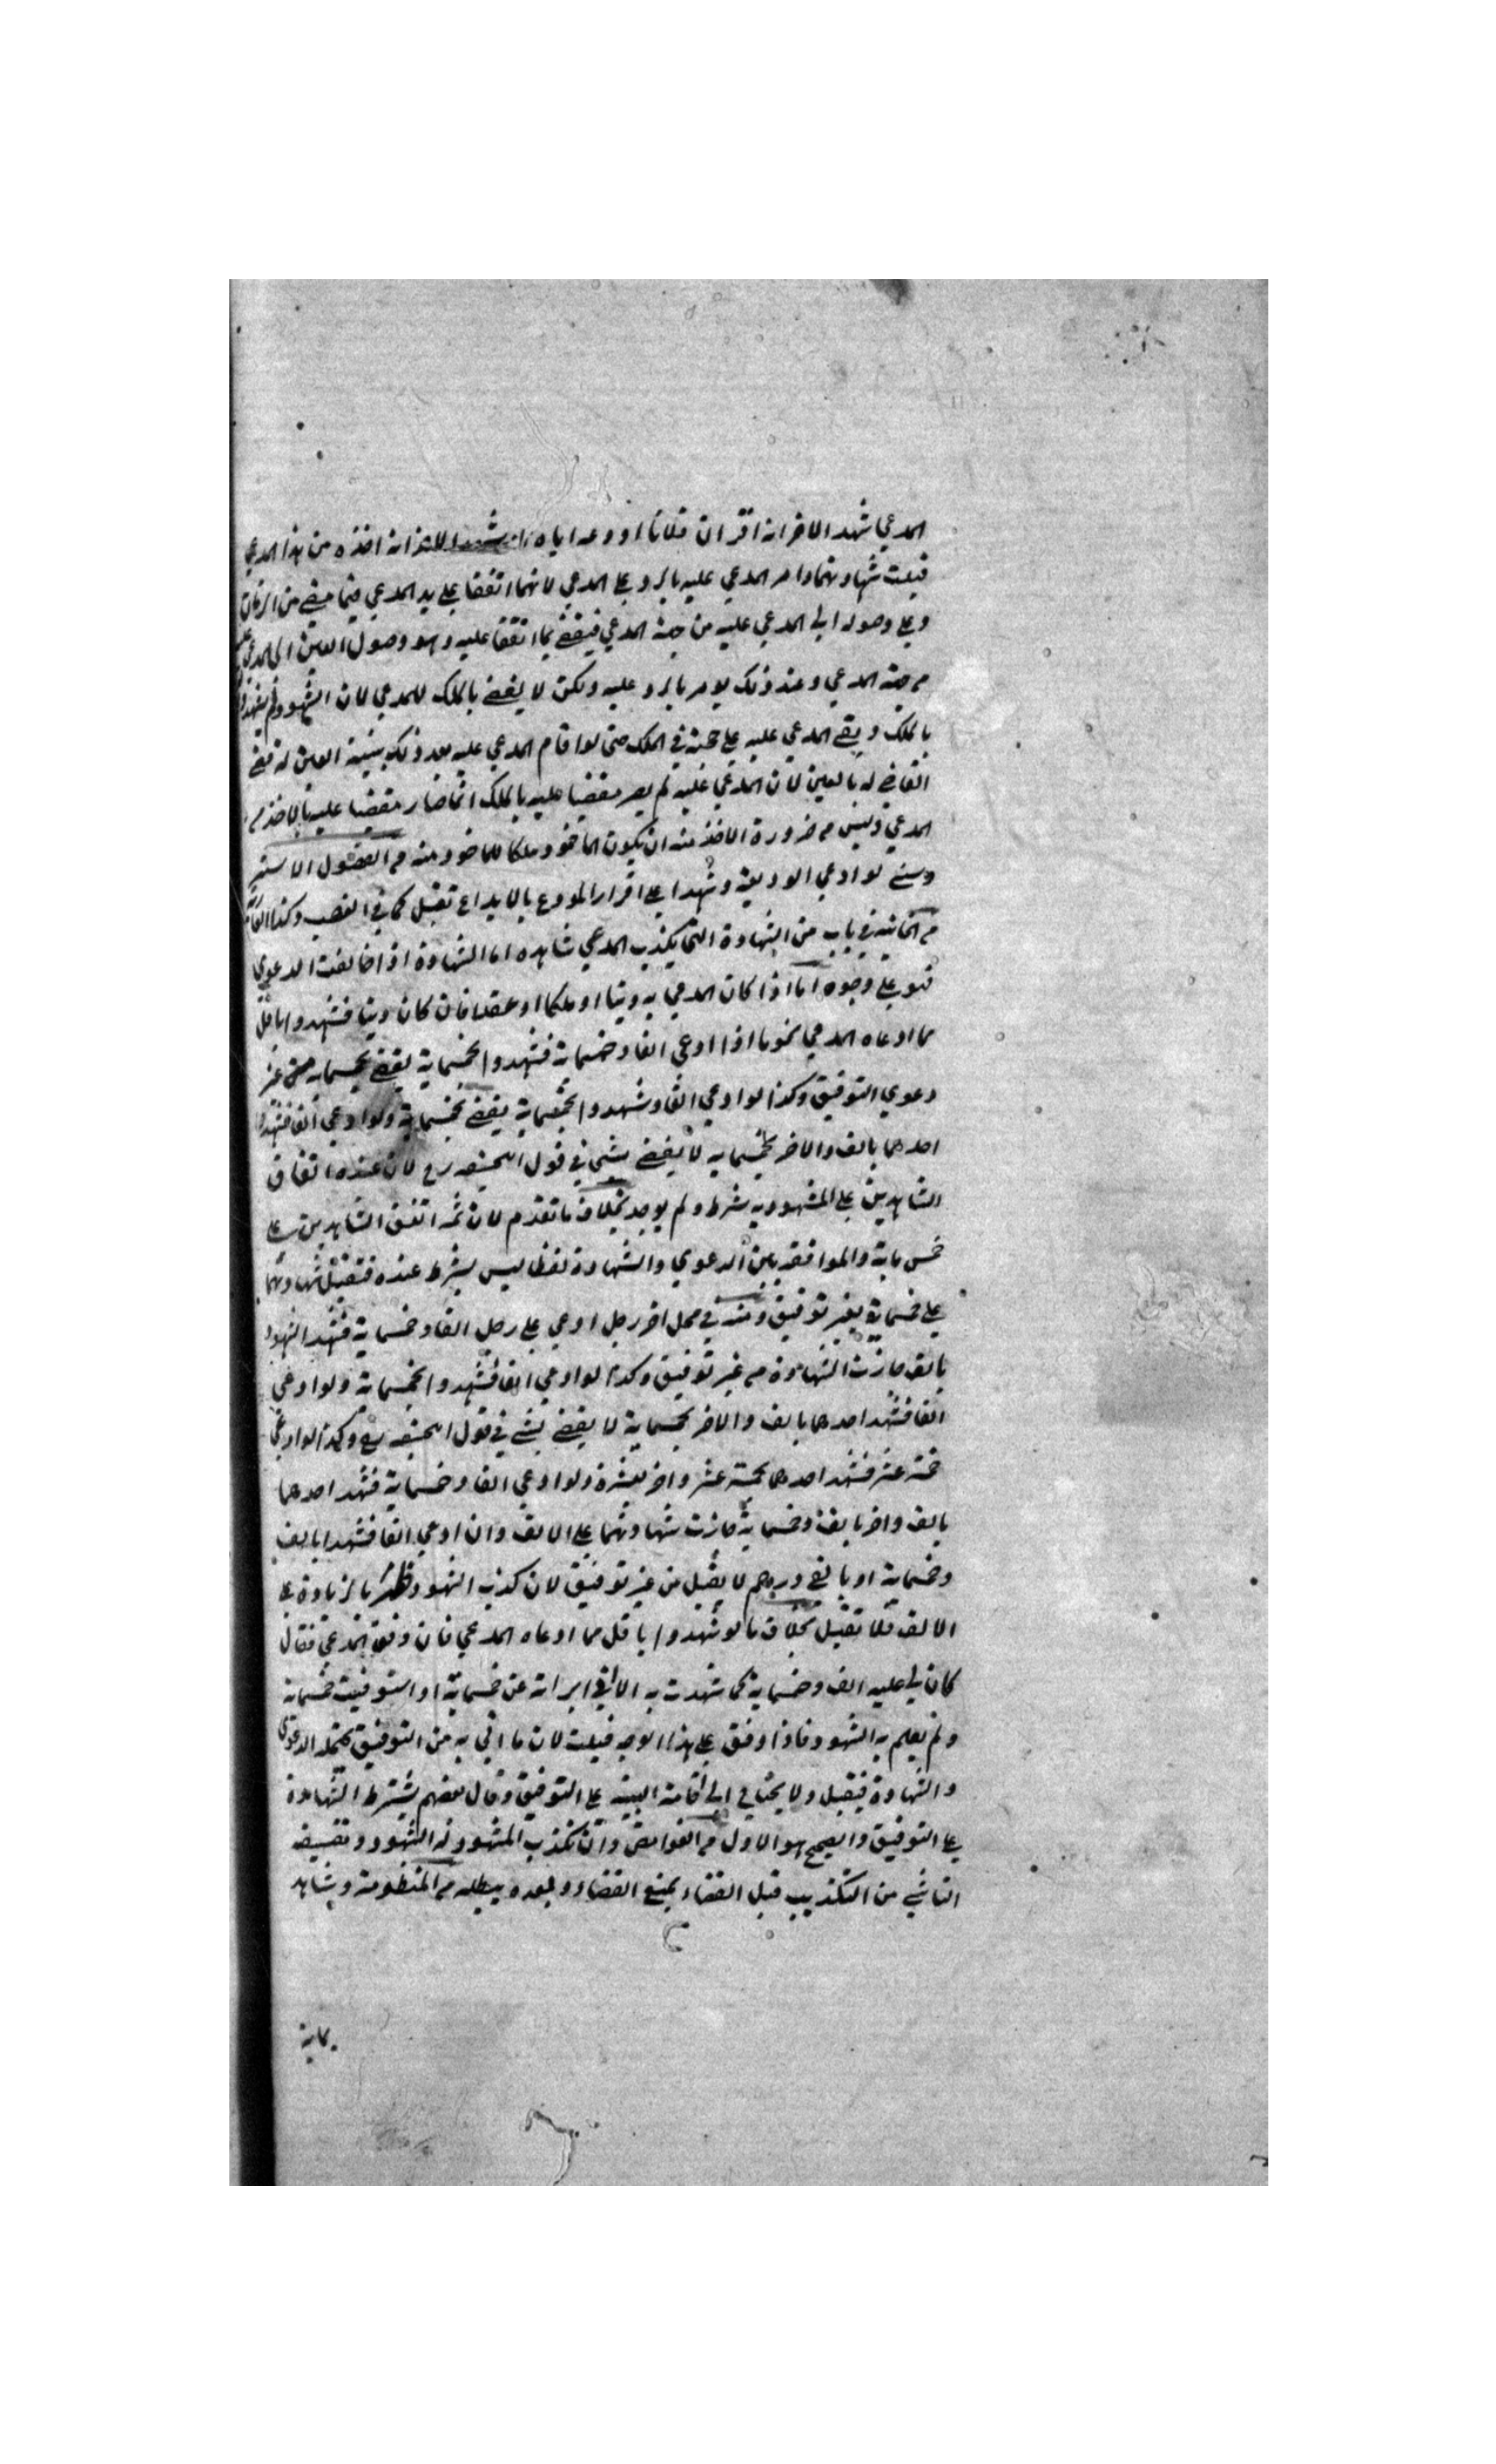 المدعي شهد الاخر انه اقر ان فلانا اودعه اياه انه اخذه من هذا المدعي
قبلت شهادتهما وامر المدعي عليه بالرد علي المدعي لانهما اتفقا علي يد المدعي فيما مضي من الزمان
وعلي وصوله الي المدعي عليه من جهة المدعي فيقضي بما اتفقا عليه وهو وصول العين الي المدعي عليه
من جهة المدعي وعند ذلك يومر بالرد عليه ولكن لا يقضي بالملك للمدعي لان الشهود لم يشهدوا
بالملك ويبقي المدعي عليه علي حجته في الملك حتي لو اقام المدعي عليه بعد ذلك بينة العين له قضي
القاضي له بالعين لان المدعي عليه لم يصر مقضيا عليه بالملك انما صار مقضيا عليه بالاخذ من
المدعي وليس من ضرورة الاخذ منه ان يكون الماخوذ ملكا للماخوذ منه من الفصول الاستر
وسني لو ادعي الوديعة وشهدا علي اقرار المودع بالايداع تقبل كما في الغصب وكذا العارية
من الخانية في باب من الشهادة التي يكذب المدعي شاهده اما الشهادة اذا خالفت الدعوي
فهو علي وجوه اما اذا كان المدعي به دينا او ملكا او عقدا فان كان دينا فشهدوا باقل
مما ادعاه المدعي نحو ما اذا ادعي الفا وخمسماية فشهدوا بخمسماية يقضي بخمسماية من غير
دعوي التوفيق وكذا لو ادعي الفا وشهدوا بخمسماية يقضي بخمسماية ولو ادعي الفا فشهد
احدهما بالف والاخر بخمسماية لا يقضي بشي في قول ابيحنيفه رح لان عنده اتفاق
الشاهدين علي المشهود به شرط ولم يوجد بخلاف ما تقدم لان ثمه اتفق الشاهدين علي
خمس ماية والموافقه بين الدعوي والشهادة لفظا ليس بشرط عنده فتقبل شهادتهما
علي خمسماية بغير توفيق ومنه في محل اخر رجل ادعي علي رجل الفا وخمسماية فشهد الشهود
بالف جازت الشهادة من غير توفيق وكذا لو ادعي الفا فشهدوا بخمسماية ولو ادعي
الفا فشهد احدهما بالف والاخر بخمسماية لا يقضي بشي في قول ابيحنيفه رح وكذا لو ادعي
خمسة عشر فشهد احدهما بخمسة عشر واخر بعشرة ولو ادعي الفا وخمسماية فشهد احدهما
بالف واخر بالف وخمسماية جازت شهادتهما علي الالف وان ادعي الفا فشهدا بالف
وخمسماية او بالفي درهم لا يقبل من غير توفيق لان كذب الشهود ظهر بالزيادة علي
الالف فلا تقبل بخلاف ما لو شهدوا باقل مما ادعاه المدعي فان وفق المدعي فقال
كان لي عليه الف وخمسماية كما شهدت به الا اني ابراته عن خمسماية او استوفيت خمسماية
ولم يعلم به الشهود فاذا وفق علي هذا الوجه قبلت لان ما اتي به من التوفيق يحتمله الدعوي
والشهادة فيقبل ولا يحتاج الي اقامة البينه علي التوفيق وقال بعضهم يشترط الشهادة
علي التوفيق والصحيح هو الاول من الغوامض وان تكذب المشهود له الشهود وتفسيقه
الناشي من التكذيب قبل القضاء يمنع القضاء وبعده يبطله من المنظومة وشاهد